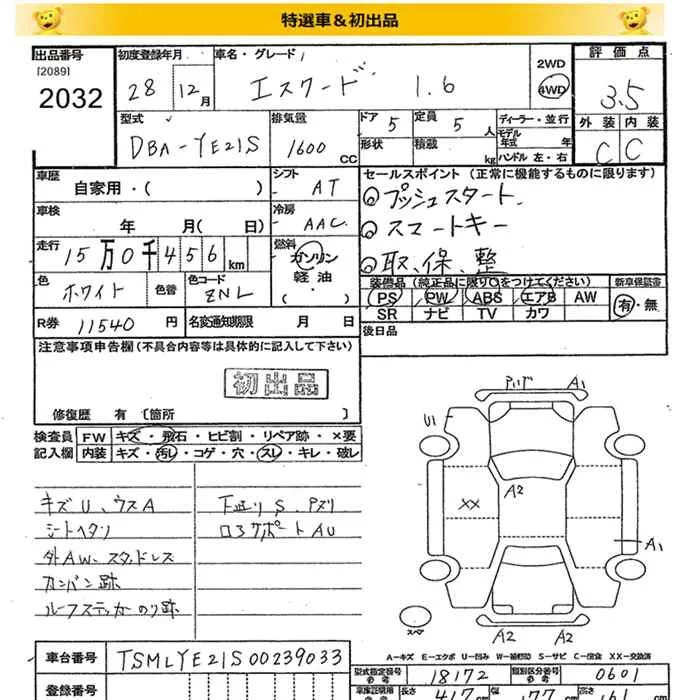 特選車＆初出品
出品番号
[2089]
2032
初度登録年月
28 12月
車名・グレード
エスクード 1.6
2WD
4WD
評価点
3.5
外装 内装
C C
型式
DBA-YE21S
排気量
1600 CC
ドア 5
定員 5 人
形状
積載 kg
ディーラー・並行
モデル年式 年
ハンドル 左・右
車歴
自家用・( )
シフト AT
車検
年 月( 日)
冷房 AAC
走行
15万0千456km
燃料
ガソリン
軽油
( ・ )
色
ホワイト
色替
色コード
ZNL
R券 11540 円
名変通知期限 月 日
セールスポイント (正常に機能するものに限ります)
◎プッシュスタート
◎スマートキー
◎取、保、整
装備品 (純正品に限り○をつけてください)
新車保証書
PS PW ABS エアB AW
有・無
SR ナビ TV カワ
後日品
注意事項申告欄(不具合内容等は具体的に記入して下さい)
初出品
修復歴 有 〔箇所 〕
検査員記入欄
FW キズ・飛石・ヒビ割・リペア跡・×要
内装 キズ・汚レ・コゲ・穴・スレ・キレ・破レ
キズU、ウスA
シートヘタリ
外AW、スタッドレス
カンバン跡
ルーフステッカーのり跡
下廻りS、Pズリ
ロアサポートAU
A1
U1
A2
XX
A1
A2 A2
スペア
A-キズ E-エクボ U-凹み W-補修跡 S-サビ C-腐食 XX-交換済
車台番号 TSMLYE21S00239033
登録番号
型式指定番号 参考 18172
類別区分番号 参考 0601
車庫証明用 参考
長さ 417 cm